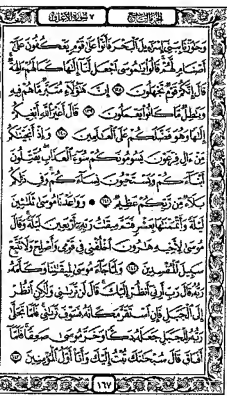 الجزء التاسع ٧ سورة الأعراف
وَجَٰوَزْنَا بِبَنِىٓ إِسْرَٰٓءِيلَ ٱلْبَحْرَ فَأَتَوْا۟ عَلَىٰ قَوْمٍ يَعْكُفُونَ عَلَىٰٓ
أَصْنَامٍ لَّهُمْ قَالُوا۟ يَٰمُوسَى ٱجْعَل لَّنَآ إِلَٰهًا كَمَا لَهُمْ ءَالِهَةٌ
قَالَ إِنَّكُمْ قَوْمٌ تَجْهَلُونَ ١٣٨ إِنَّ هَٰٓؤُلَآءِ مُتَبَّرٌ مَّا هُمْ فِيهِ
وَبَٰطِلٌ مَّا كَانُوا۟ يَعْمَلُونَ ١٣٩ قَالَ أَغَيْرَ ٱللَّهِ أَبْغِيكُمْ
إِلَٰهًا وَهُوَ فَضَّلَكُمْ عَلَى ٱلْعَٰلَمِينَ ١٤٠ وَإِذْ أَنجَيْنَٰكُم
مِّنْ ءَالِ فِرْعَوْنَ يَسُومُونَكُمْ سُوٓءَ ٱلْعَذَابِ يُقَتِّلُونَ
أَبْنَآءَكُمْ وَيَسْتَحْيُونَ نِسَآءَكُمْ وَفِى ذَٰلِكُم
بَلَآءٌ مِّن رَّبِّكُمْ عَظِيمٌ ١٤١ وَوَٰعَدْنَا مُوسَىٰ ثَلَٰثِينَ
لَيْلَةً وَأَتْمَمْنَٰهَا بِعَشْرٍ فَتَمَّ مِيقَٰتُ رَبِّهِۦٓ أَرْبَعِينَ لَيْلَةً وَقَالَ
مُوسَىٰ لِأَخِيهِ هَٰرُونَ ٱخْلُفْنِى فِى قَوْمِى وَأَصْلِحْ وَلَا تَتَّبِعْ
سَبِيلَ ٱلْمُفْسِدِينَ ١٤٢ وَلَمَّا جَآءَ مُوسَىٰ لِمِيقَٰتِنَا وَكَلَّمَهُۥ
رَبُّهُۥ قَالَ رَبِّ أَرِنِىٓ أَنظُرْ إِلَيْكَ قَالَ لَن تَرَىٰنِى وَلَٰكِنِ ٱنظُرْ
إِلَى ٱلْجَبَلِ فَإِنِ ٱسْتَقَرَّ مَكَانَهُۥ فَسَوْفَ تَرَىٰنِى فَلَمَّا تَجَلَّىٰ
رَبُّهُۥ لِلْجَبَلِ جَعَلَهُۥ دَكًّا وَخَرَّ مُوسَىٰ صَعِقًا فَلَمَّآ
أَفَاقَ قَالَ سُبْحَٰنَكَ تُبْتُ إِلَيْكَ وَأَنَا۠ أَوَّلُ ٱلْمُؤْمِنِينَ ١٤٣
١٦٧